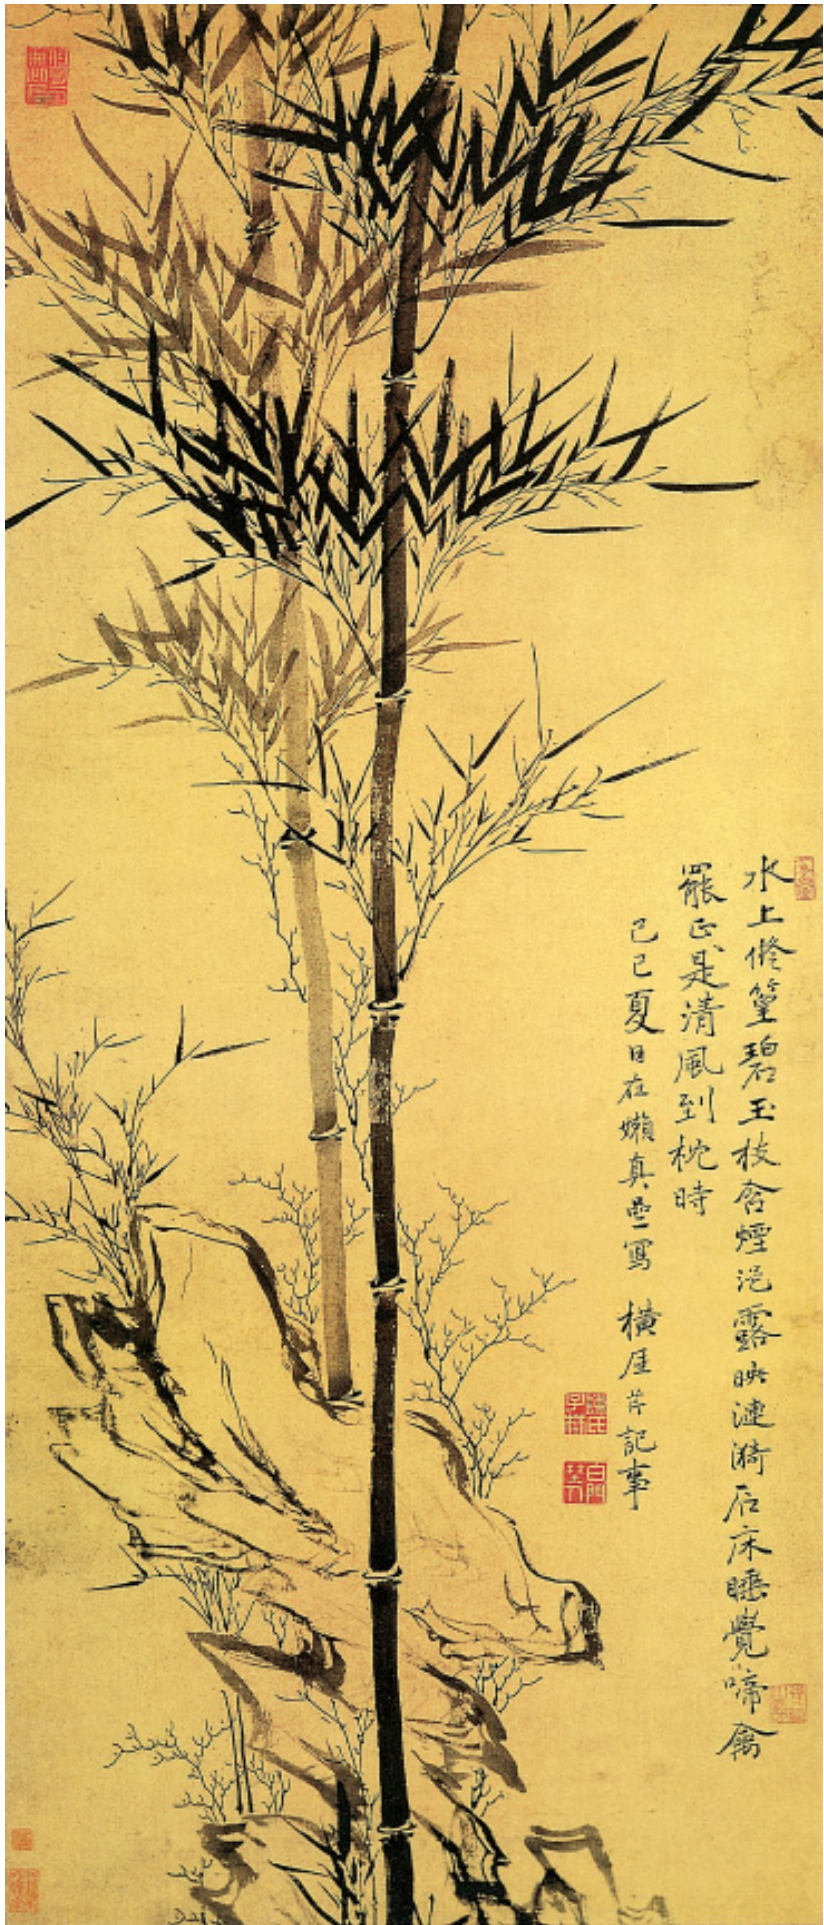 水上脩篁碧玉枝含煙浥露映漣漪石床睡覺啼禽
罷正是清風到枕時
己巳夏日在嬾真寫 橫厓芹記事
白門